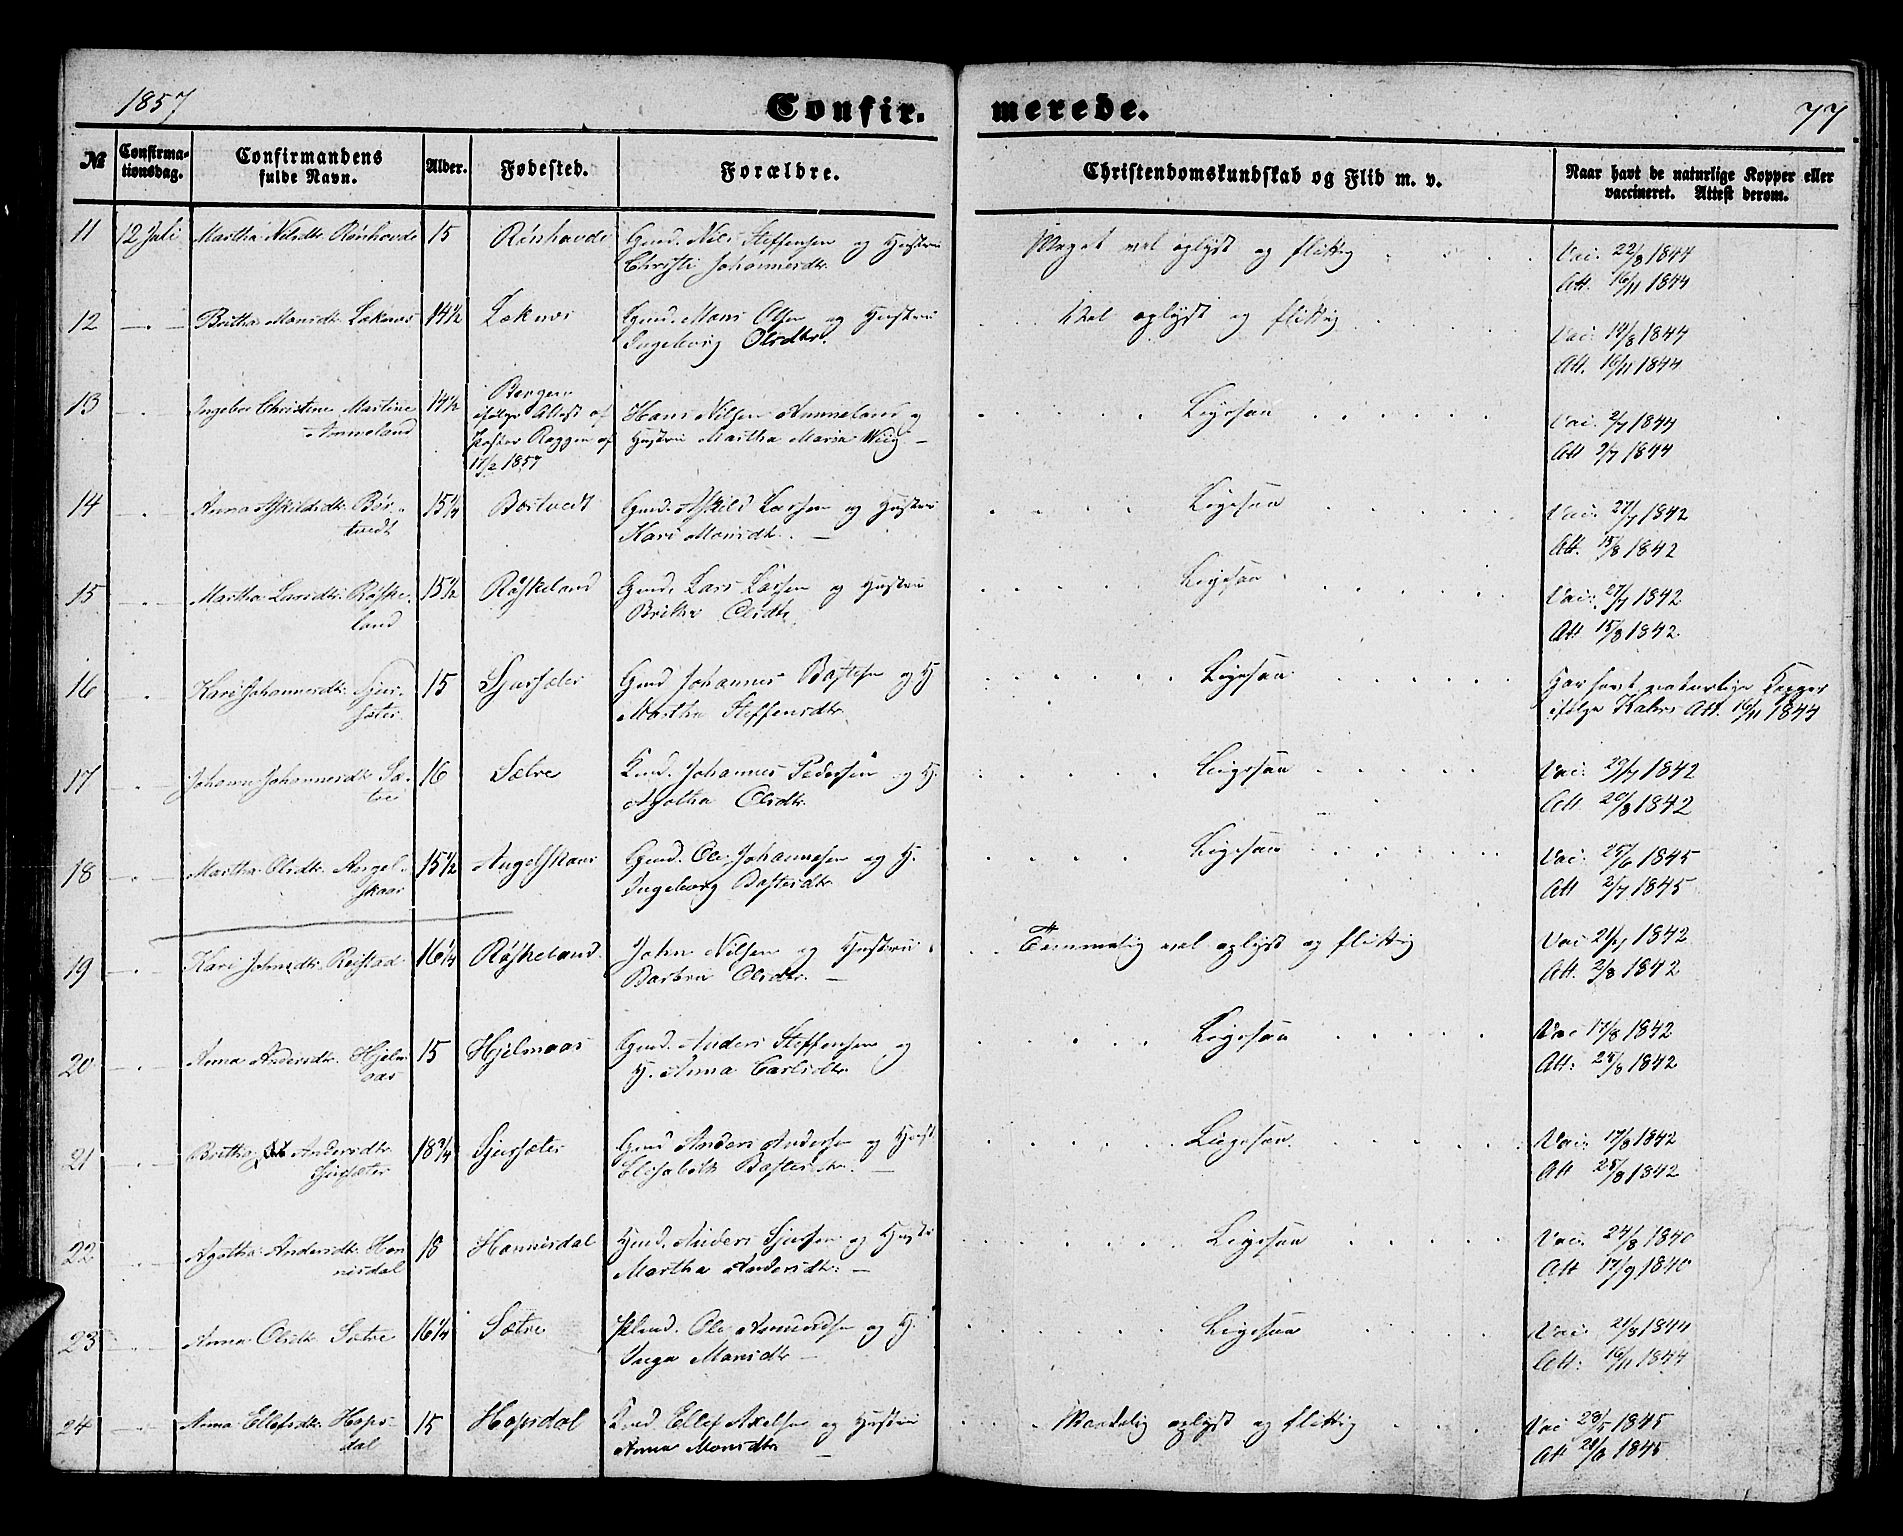 1857
Confir-
merede.
77
№
Confirma-
tionsdag.
Confirmandens
fulde Navn.
Alder.
Fødested.
Forældre.
Christendomskundskab og Flid m. v.
Naar havt de naturlige Kopper eller
vaccineret. Attest derom.
11 12 Juli Martha Nilsdtr. Rönhovde 15 Rönhovde Gmd. Nils Steffensen og Hustru
Christi Johannesdtr. Meget vel oplyst og flittig Vac. 22/8 1844
Att. 16/11 1844
12 Britha Monsdtr. Loknæs 14 1/2 Loknæs Gmd. Mons Olsen og Hustru
Ingeborg Olsdtr. Vel oplyst og flittig Vac: 19/8 1844
Att. 16/11 1844
13 Ingebor Christine Martine
Anneland 14 1/2 Bergen
ifølge Attest af
Pastor Roggen af
17/2 1857 Hans Nilsen Anneland og
Hustru Martha Maria Wiig – Ligesaa Vac. 2/7 1844
Att 9/7 1844
14 Anna Askildsdtr. Bör-
tvedt 15 1/4 Börtvedt Gmd. Askild Larsen og Hustru
Kari Monsdtr. – Ligesaa Vac. 27/7 1842
Att. 15/8 1842
15 Martha Larsdtr. Röske-
land 15 1/2 Röskeland Gmd. Lars Larsen og Hustru
Britha Olsdtr. Ligesaa Vac: 27/7 1842
Att 15/8 1842.
16 Kari Johannesdtr. Sjur-
sæter 15 Sjursæter Gmd Johannes Bastesen og H.
Martha Steffensdtr. Ligesaa Har havt naturlige Kopper
ifølge Kahrs Att. 16/11 1844
17 Johanne Johannesdtr. Sæ-
tre 16 Sætre Kmd. Johannes Pedersen og H.
Agatha Olsdtr. Ligesaa Vac: 29/7 1842
Att 20/8 1842
18 Martha Olsdtr. Angel-
skaar 15 1/2 Angelskaar Gmd. Ole Johannesen og H.
Ingeborg Bastesdtr. Ligesaa Vac: 25/6 1845
Att 2/7 1845
19 Kari Johnsdtr. Reistad 16 1/4 Röskeland. John Nilsen og Hustru
Barbra Olsdtr. – Temmelig vel oplyst og flittig Vac 21/7 1842
Att. 2/8 1842
20 Anna Andersdtr. Hjelm-
aas 15 Hjelmaas Gmd. Anders Steffensen og
H. Anna Carlsdtr. Ligesaa Vac 17/8 1842
Att: 25/8 1842
21 Britha Andersdtr.
Sjursæter 18 3/4 Sjursæter Gmd Anders Andersen og Hust.
Elisabeth Bastesdtr. – Ligesaa Vac: 17/8 1842
Att 25/8 1842
22 Agatha Andersdtr. Han-
nisdal 18 Hannisdal Hmd. Anders Sjursen og Hustr.
Martha Andersdtr. – Ligesaa Vac. 24/8 1840
Att 17/9 1840
23 Anna Olsdtr. Sætre 16 1/4 Sætre Plmd. Ole Asmundsen og H.
Inga Monsdtr. – Ligesaa Vac. 21/8 1844
Att: 16/11 1844
24 Anna Ellefsdtr. Hops-
dal 15 Hopsdal Kmd. Ellef Axelsen og Hustru
Anna Monsdtr. – Maadelig oplyst og flittig Vac 28/5 1845
Att 21/6 1845.